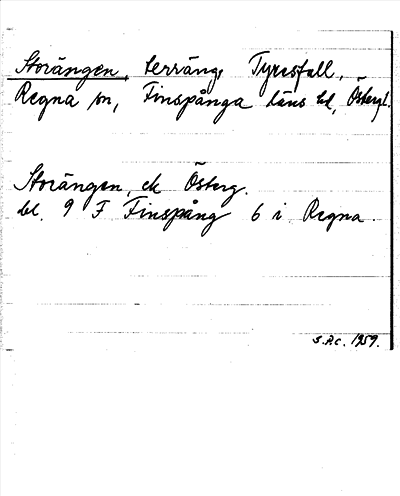 Storängen, terräng, Tyresfall,
Regna sn, Finspånga läns hd, Östergl.
Storängen, ek Österg.
bl. 9 F Finspång 6 i Regna.
S.R.C. 1959.